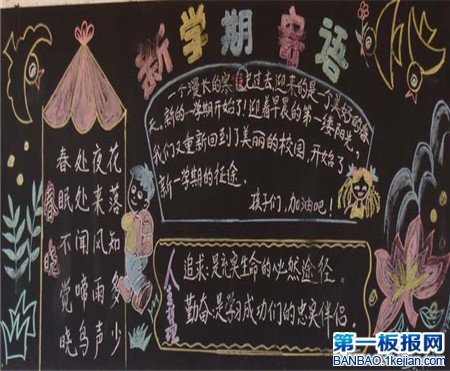 新学期寄语
春晓
春眠不觉晓
处处闻啼鸟
夜来风雨声
花落知多少
一个漫长的寒假已过去,迎来的是一个美好的春
天。新的一学期开始了!迎着早晨的第一缕阳光,
我们又重新回到了美丽的校园,开始了
新一学期的征途。
孩子们,加油吧!
人生
追求:是充实生命的必然途径。
勤奋:是学习成功们的忠实伴侣。
第一板报网
BANBAO.1kejian.com